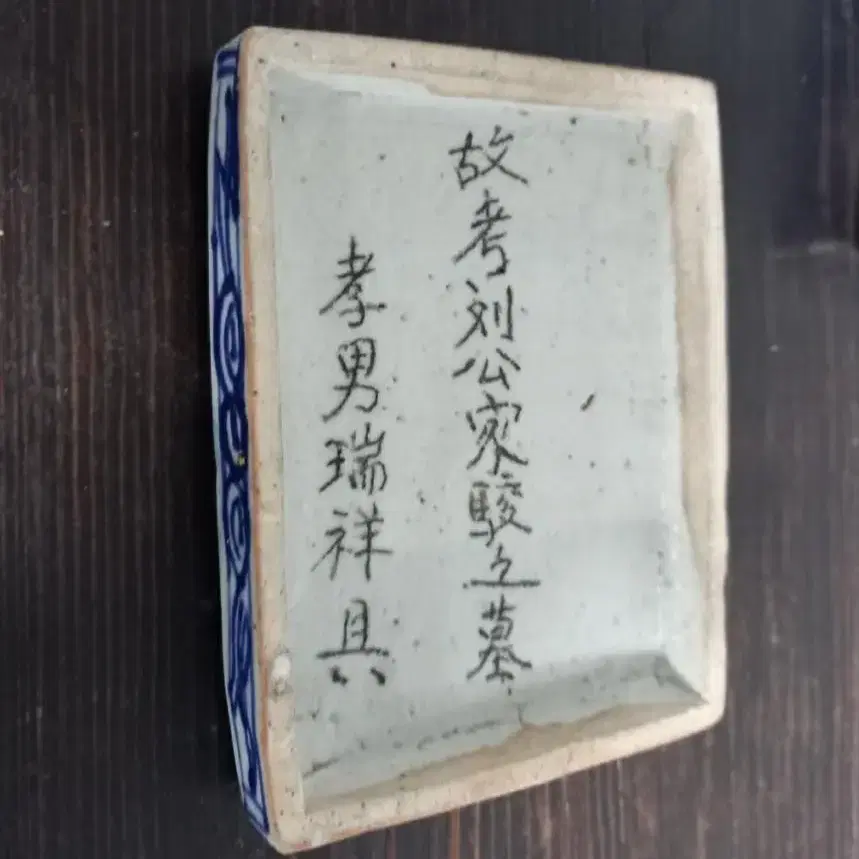 故考刘公家駿之墓
孝男瑞祥具